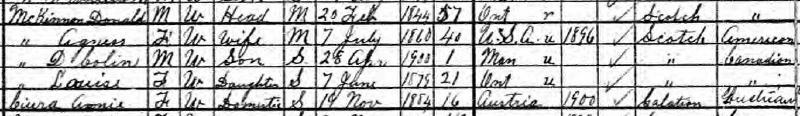 McKinnon Donald M W Head M 20 Feb 1844 57 Ont r ✓ Scotch "
" Agness F W Wife M 7 July 1860 40 U.S.A. u 1896 ✓ Scotch American
" D Colin M W Son S 28 Apr 1900 1 Man u ✓ " Canadian
" Louise F W Daughter S 7 June 1879 21 Ont u ✓ " "
Annie F W Domestic S 19 Nov 1884 16 Austria 1900 ✓ Galatian